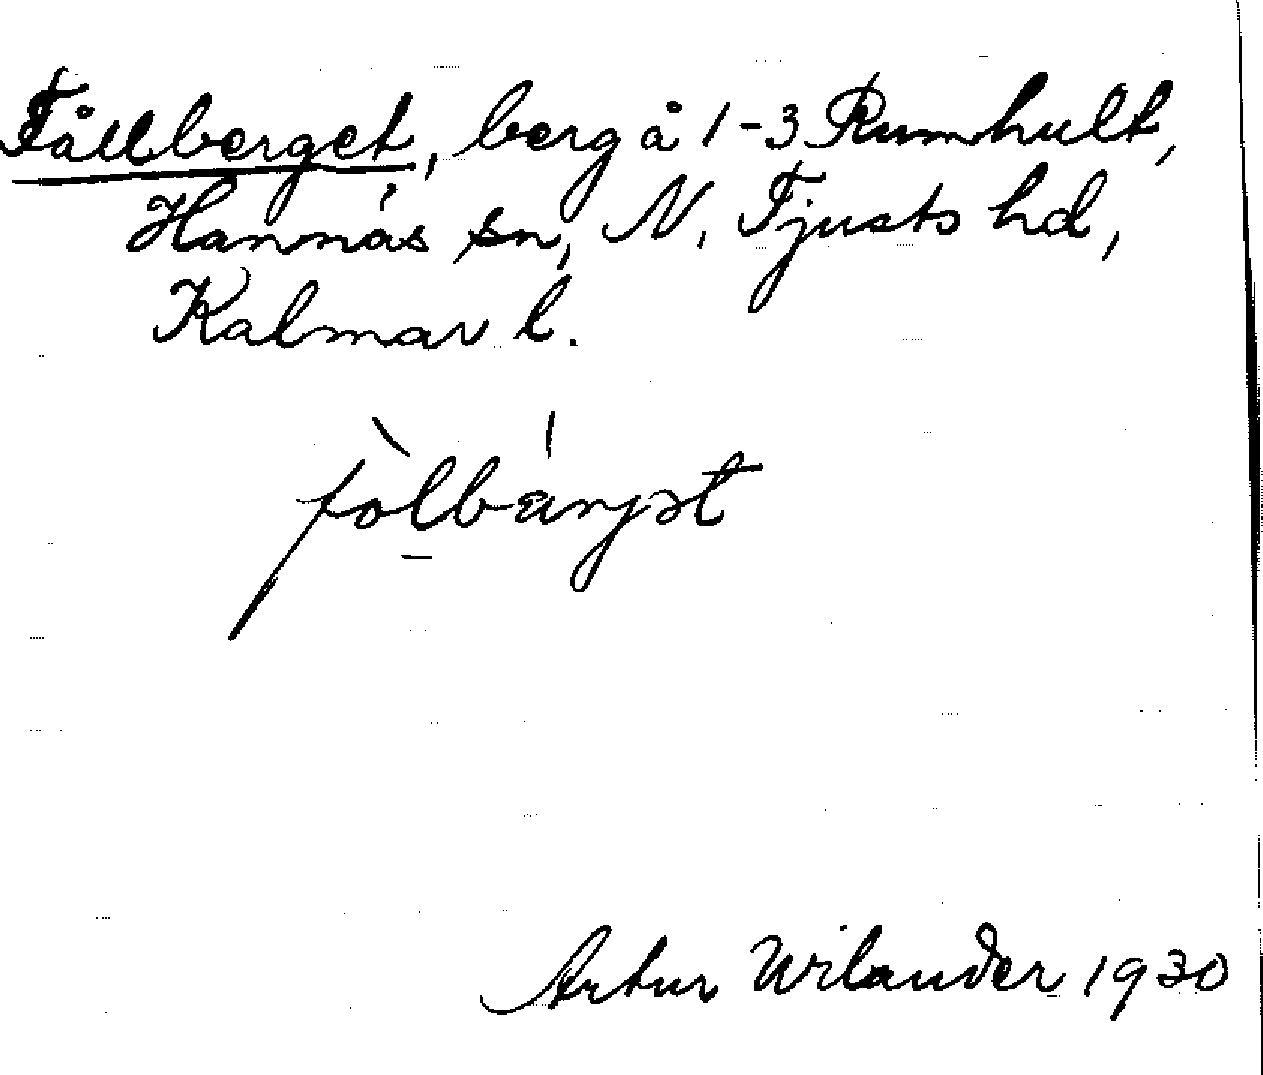 Fållberget, berg å 1-3 Rumhult,
Hannäs sn, N. Tjusts hd,
Kalmar l.
Artur Wilander 1930